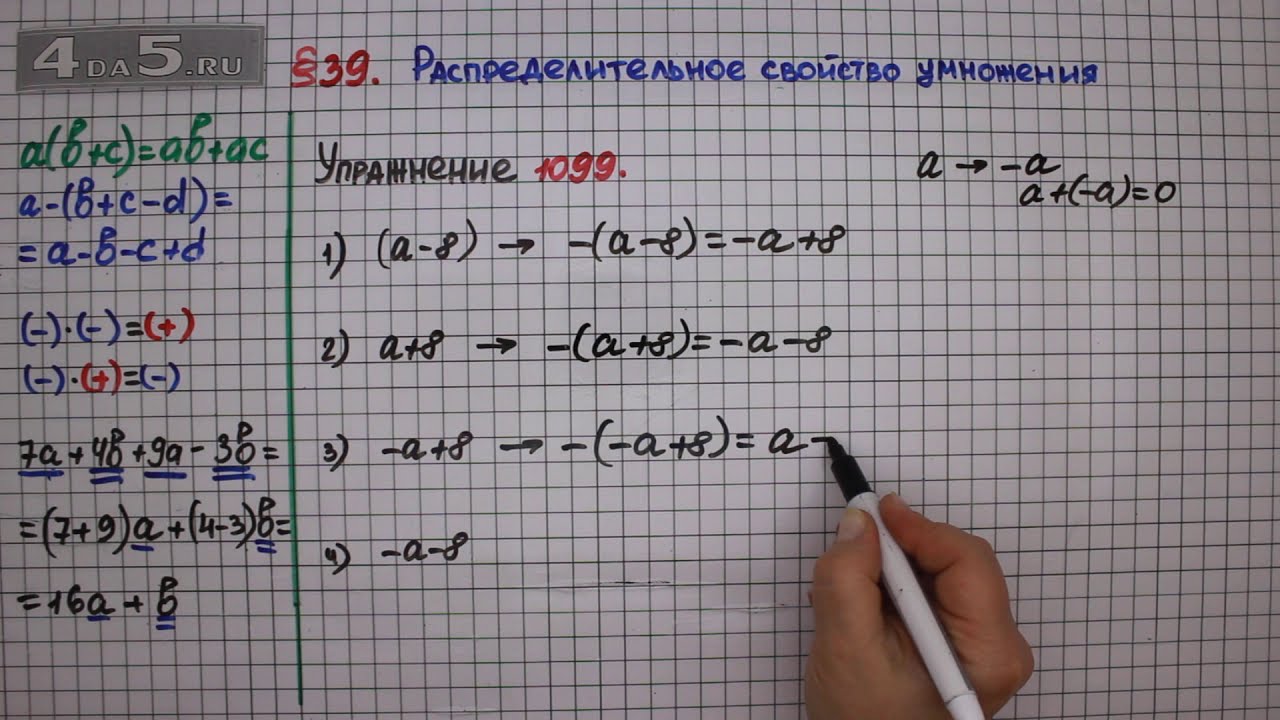 4DA5.RU
§39. Распределительное свойство умножения
a(b+c)=ab+ac
a-(b+c-d)=
=a-b-c+d
(-)·(-)=(+)
(-)·(+)=(-)
7a+4b+9a-3b=
=(7+9)a+(4-3)b=
=16a+b
Упражнение 1099.
a → -a
a+(-a)=0
1) (a-8) → -(a-8)=-a+8
2) a+8 → -(a+8)=-a-8
3) -a+8 → -(-a+8)=a-
4) -a-8